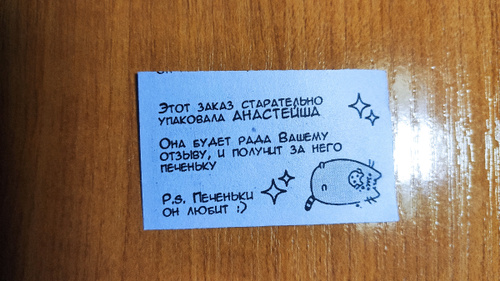 Этот заказ старательно
упаковала АНАСТЕЙША
Она будет рада Вашему
отзыву, и получит за него
печеньку
P.s. Печеньки
он любит :)